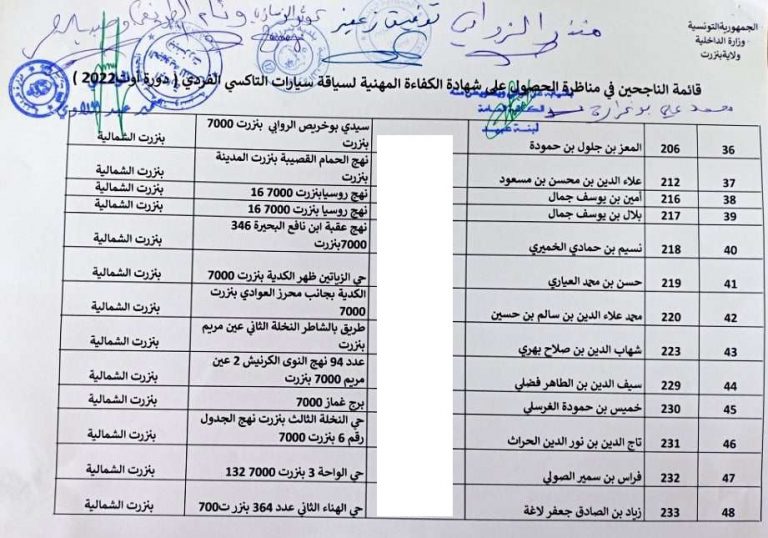 الجمهورية التونسية
وزارة الداخلية
ولاية بنزرت
قائمة الناجحين في مناظرة الحصول على شهادة الكفاءة المهنية لسياقة سيارات التاكسي الفردي ( دورة أوت 2022 )
36 206 المعز بن جلول بن حمودة سيدي بوخريص الروابي بنزرت 7000 بنزرت بنزرت الشمالية
37 212 علاء الدين بن محسن بن مسعود نهج الحمام القصيبة بنزرت المدينة بنزرت بنزرت الشمالية
38 216 أمين بن يوسف جمال نهج روسيابنزرت 7000 16 بنزرت الشمالية
39 217 بلال بن يوسف جمال نهج روسيا بنزرت 7000 16 بنزرت الشمالية
40 218 نسيم بن حمادي الخميري نهج عقبة ابن نافع البحيرة 346 7000بنزرت بنزرت الشمالية
41 219 حسن بن محمد العياري حي الزياتين ظهر الكدية بنزرت 7000 بنزرت الشمالية
42 220 محمد علاء الدين بن سالم بن حسين الكدية بجانب محرز العوادي بنزرت 7000 بنزرت الشمالية
43 223 شهاب الدين بن صلاح بهري طريق بالشاطر النخلة الثاني عين مريم بنزرت بنزرت الشمالية
44 229 سيف الدين بن الطاهر فضلي عدد 94 نهج النوى الكرنيش 2 عين مريم 7000 بنزرت بنزرت الشمالية
45 230 خميس بن حمودة الغرسلي برج غماز 7000 بنزرت الشمالية
46 231 تاج الدين بن نور الدين الحراث حي النخلة الثالث بنزرت نهج الجدول رقم 6 بنزرت 7000 بنزرت الشمالية
47 232 فراس بن سمير الصولي حي الواحة 3 بنزرت 7000 132 بنزرت الشمالية
48 233 زياد بن الصادق جعفر لاغة حي الهناء الثاني عدد 364 بنزر ت700 بنزرت الشمالية